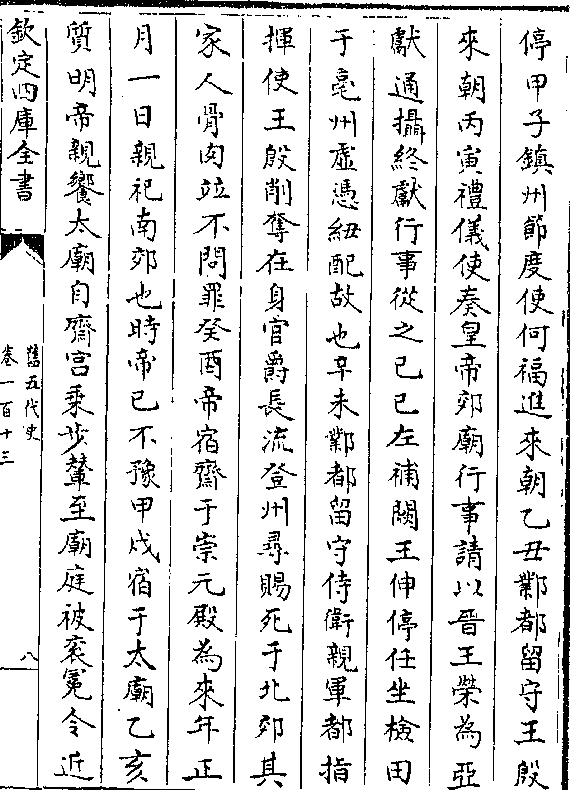 停甲子鎮州節度使何福進來朝乙丑鄴都留守王殷
來朝丙寅禮儀使奏皇帝郊廟行事請以晉王榮為亞
獻通攝終獻行事從之己巳左補闕王伸停任坐檢田
于亳州虛憑紐配故也辛未鄴都留守侍衛親軍都指
揮使王殷削奪在身官爵長流登州尋賜死于北郊其
家人骨肉竝不問罪癸酉帝宿齋于崇元殿為來年正
月一日親祀南郊也時帝已不豫甲戍宿于太廟乙亥
質明帝親饗太廟自齋宮乘步輦至廟庭被衮冕令近
欽定四庫全書
舊五代史
卷一百十三
八